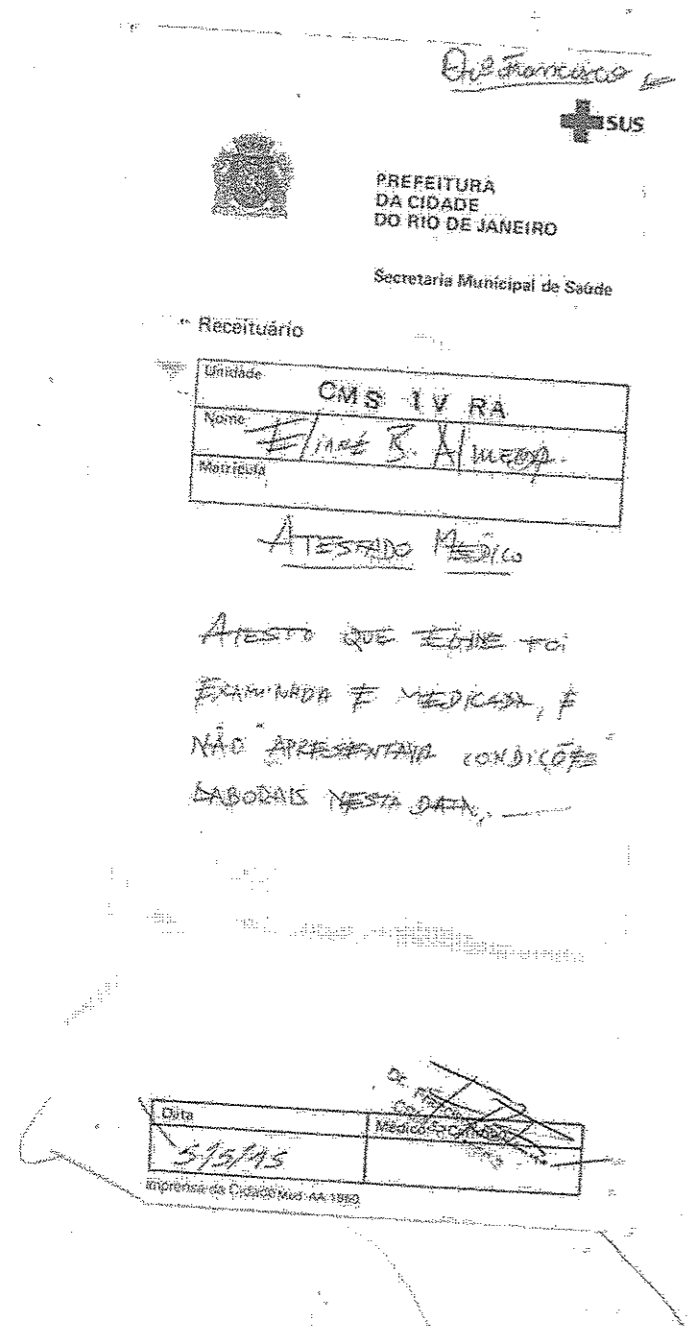 Francisco
SUS
PREFEITURA
DA CIDADE
DO RIO DE JANEIRO
Secretaria Municipal de Saúde
Receituário
Unidade
CMS IV RA
Nome
Eliane B. Almeida
Matrícula
ATESTADO MÉDICO
ATESTO QUE ELIANE FOI
EXAMINADA E MEDICADA, E
NÃO APRESENTAVA CONDIÇÕES
LABORAIS NESTA DATA.
Data
Médico
5/5/95
Imprensa da Cidade Mod. AA 1860